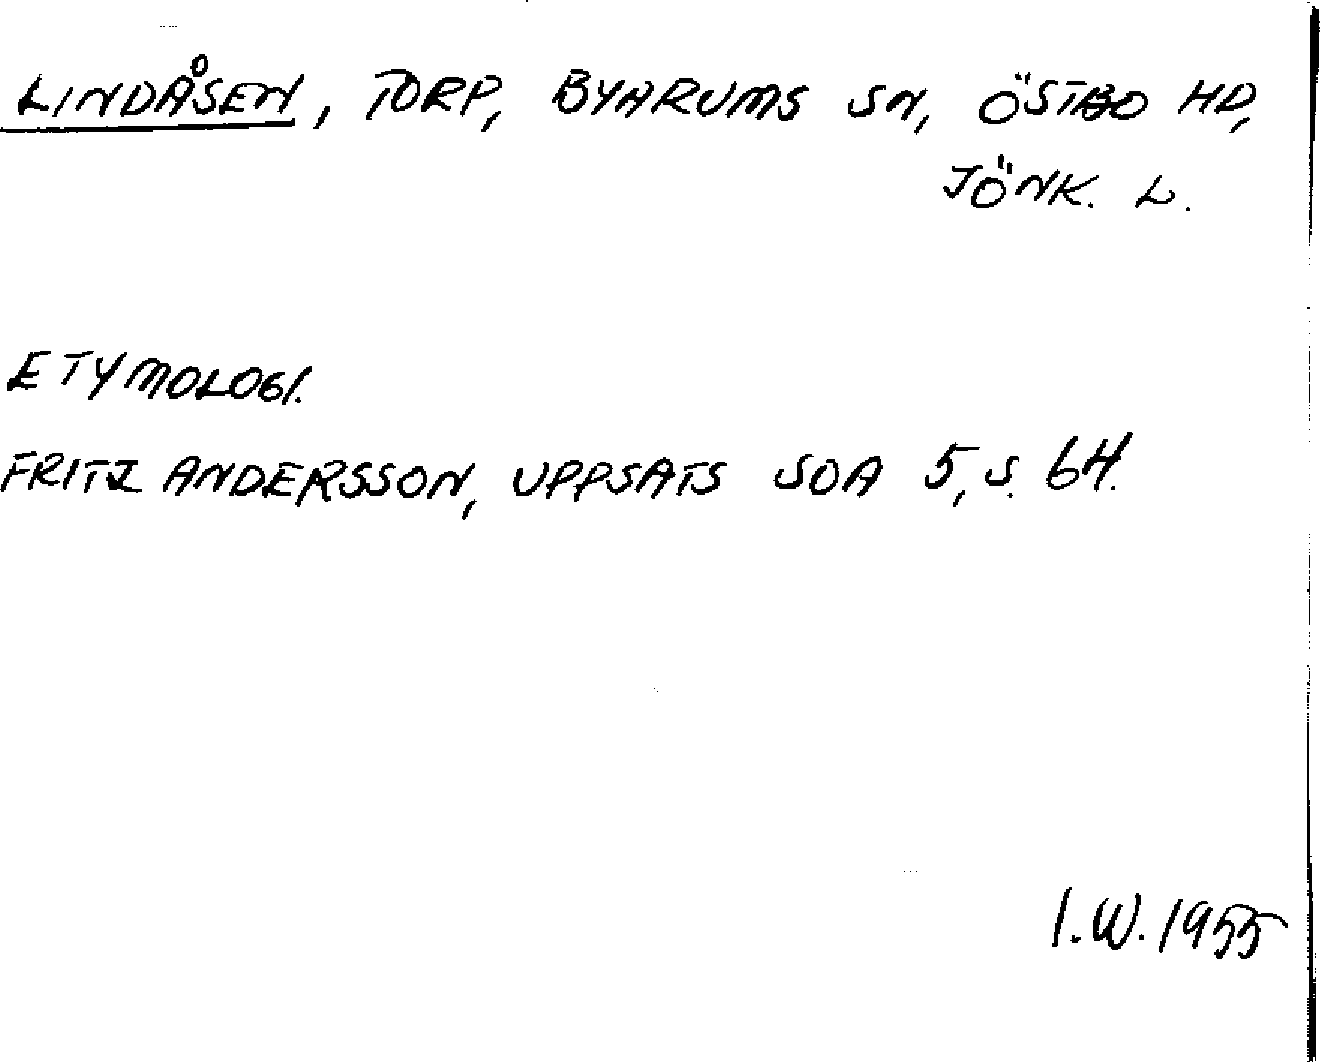 LINDÅSEN, TORP, BYARUMS SN, ÖSTBO HD,
JÖNK. L.
ETYMOLOGI.
FRITZ ANDERSSON, UPPSATS SOA 5, S. 64.
I.W. 1955